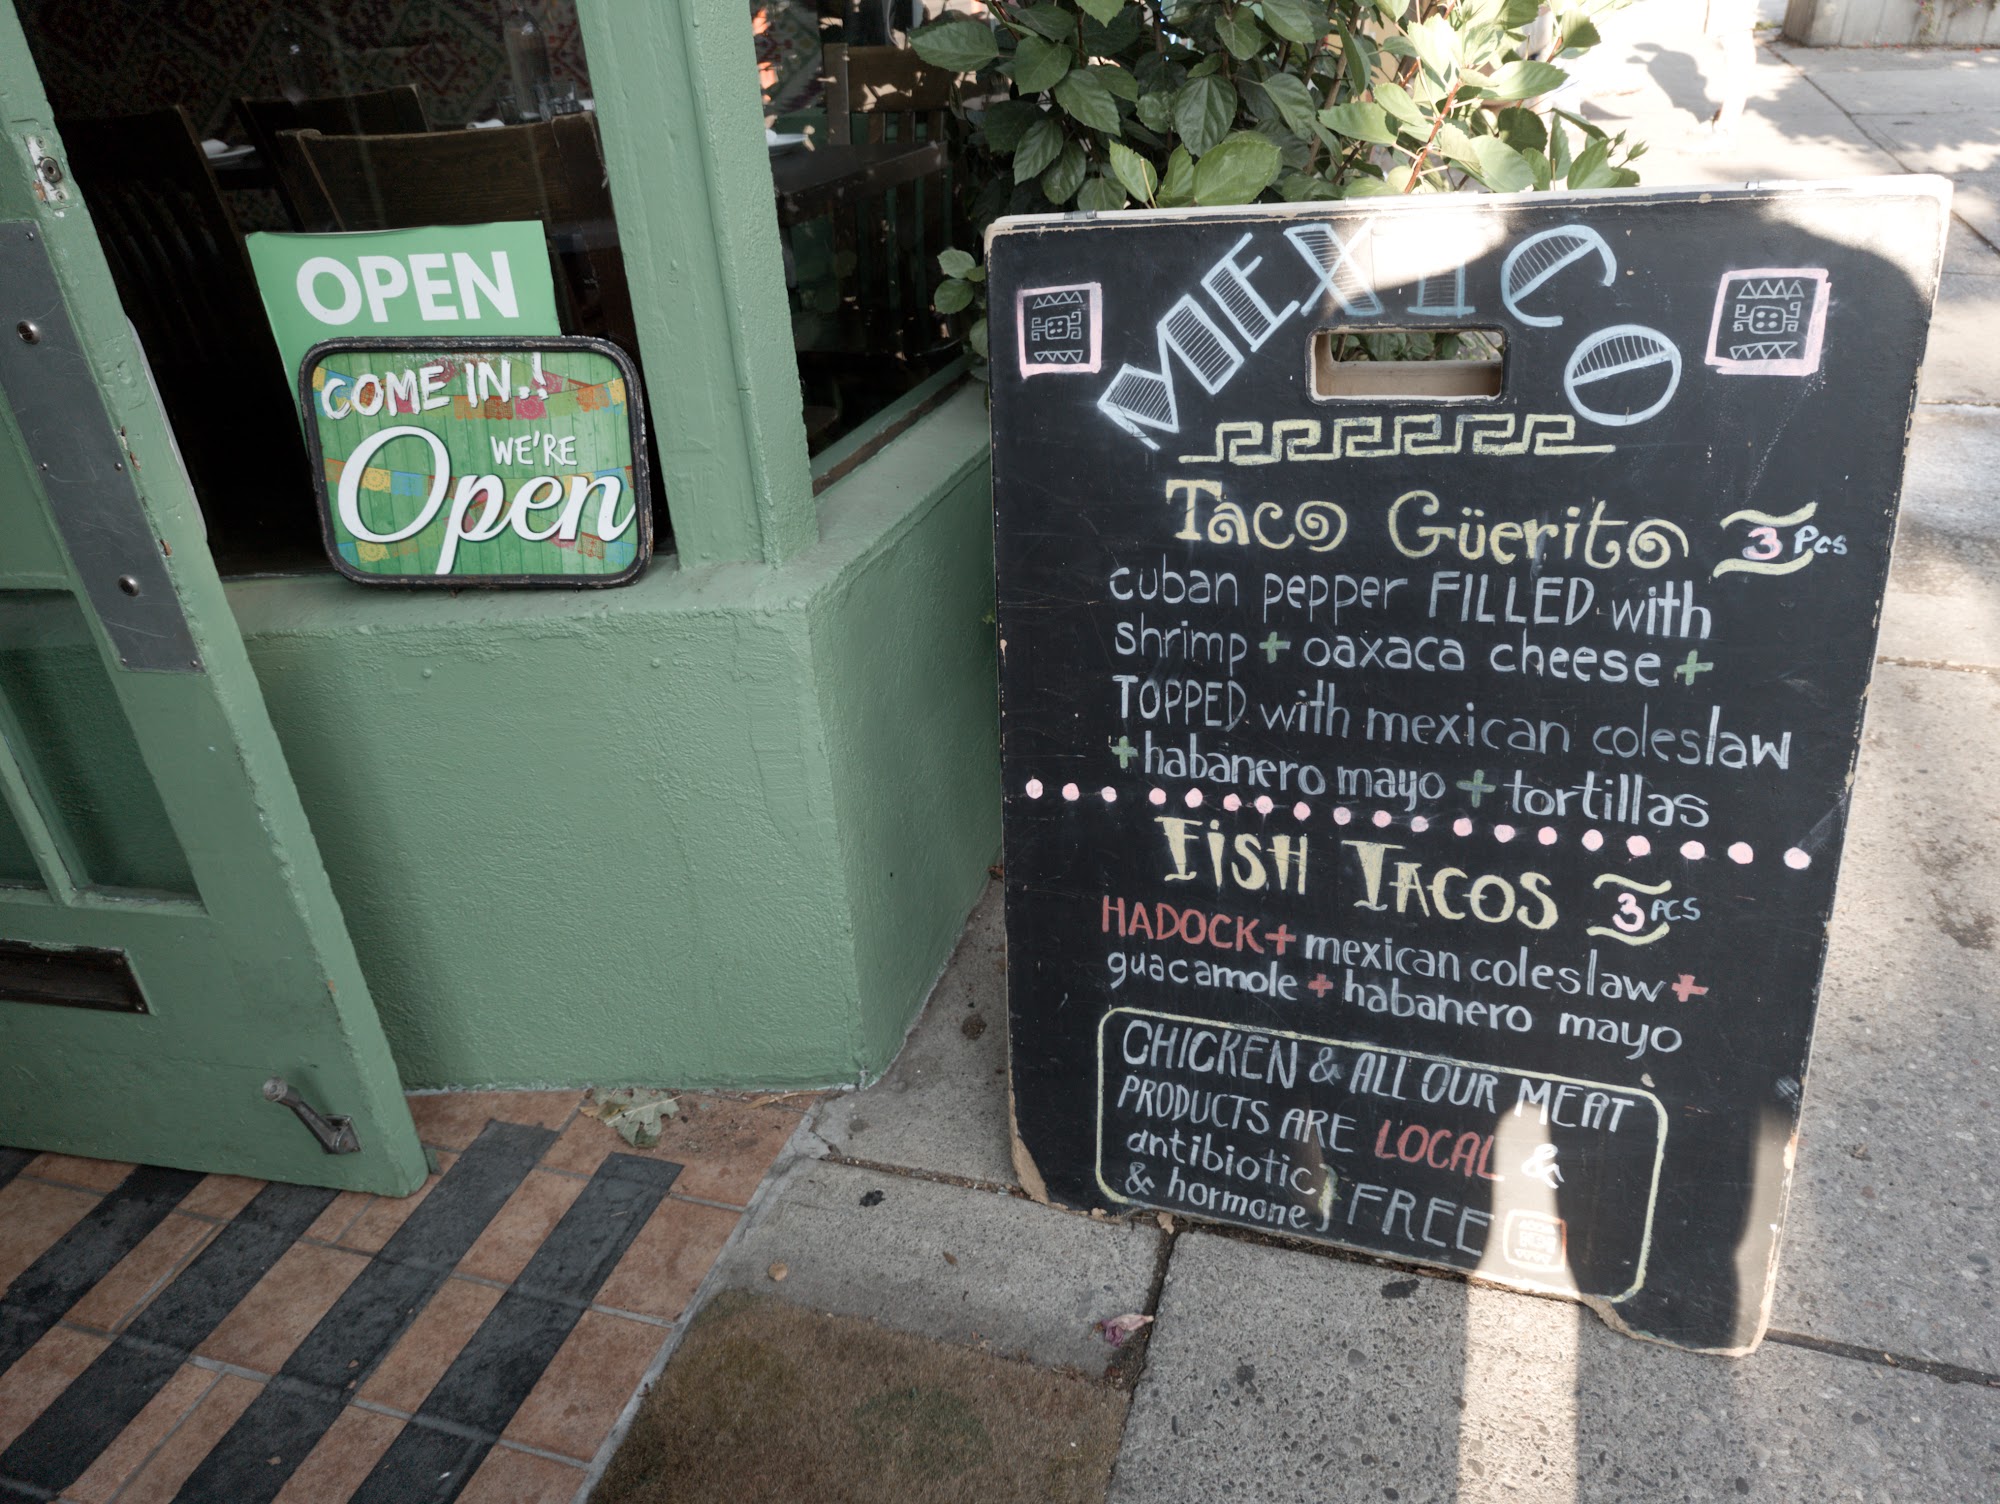 OPEN
COME IN..!
WE'RE
Open
MEXICO
Taco Güerito 3 Pcs
cuban pepper FILLED with
shrimp + oaxaca cheese +
TOPPED with mexican coleslaw
+ habanero mayo + tortillas
FiSH TACOS 3 PCS
HADOCK + mexican coleslaw +
guacamole + habanero mayo
CHICKEN & ALL OUR MEAT
PRODUCTS ARE LOCAL &
antibiotic } FREE
& hormone